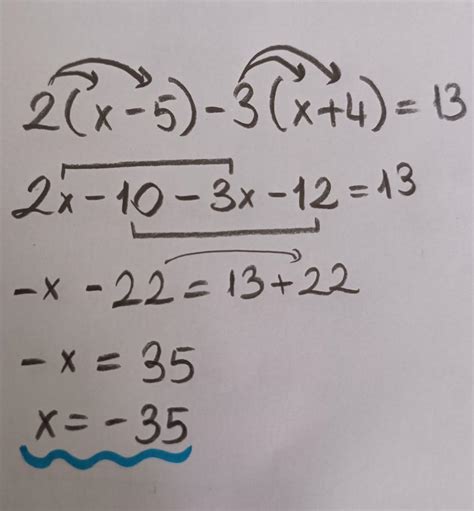 2(x-5)-3(x+4)=13
2x-10-3x-12=13
-x-22=13+22
-x=35
x=-35